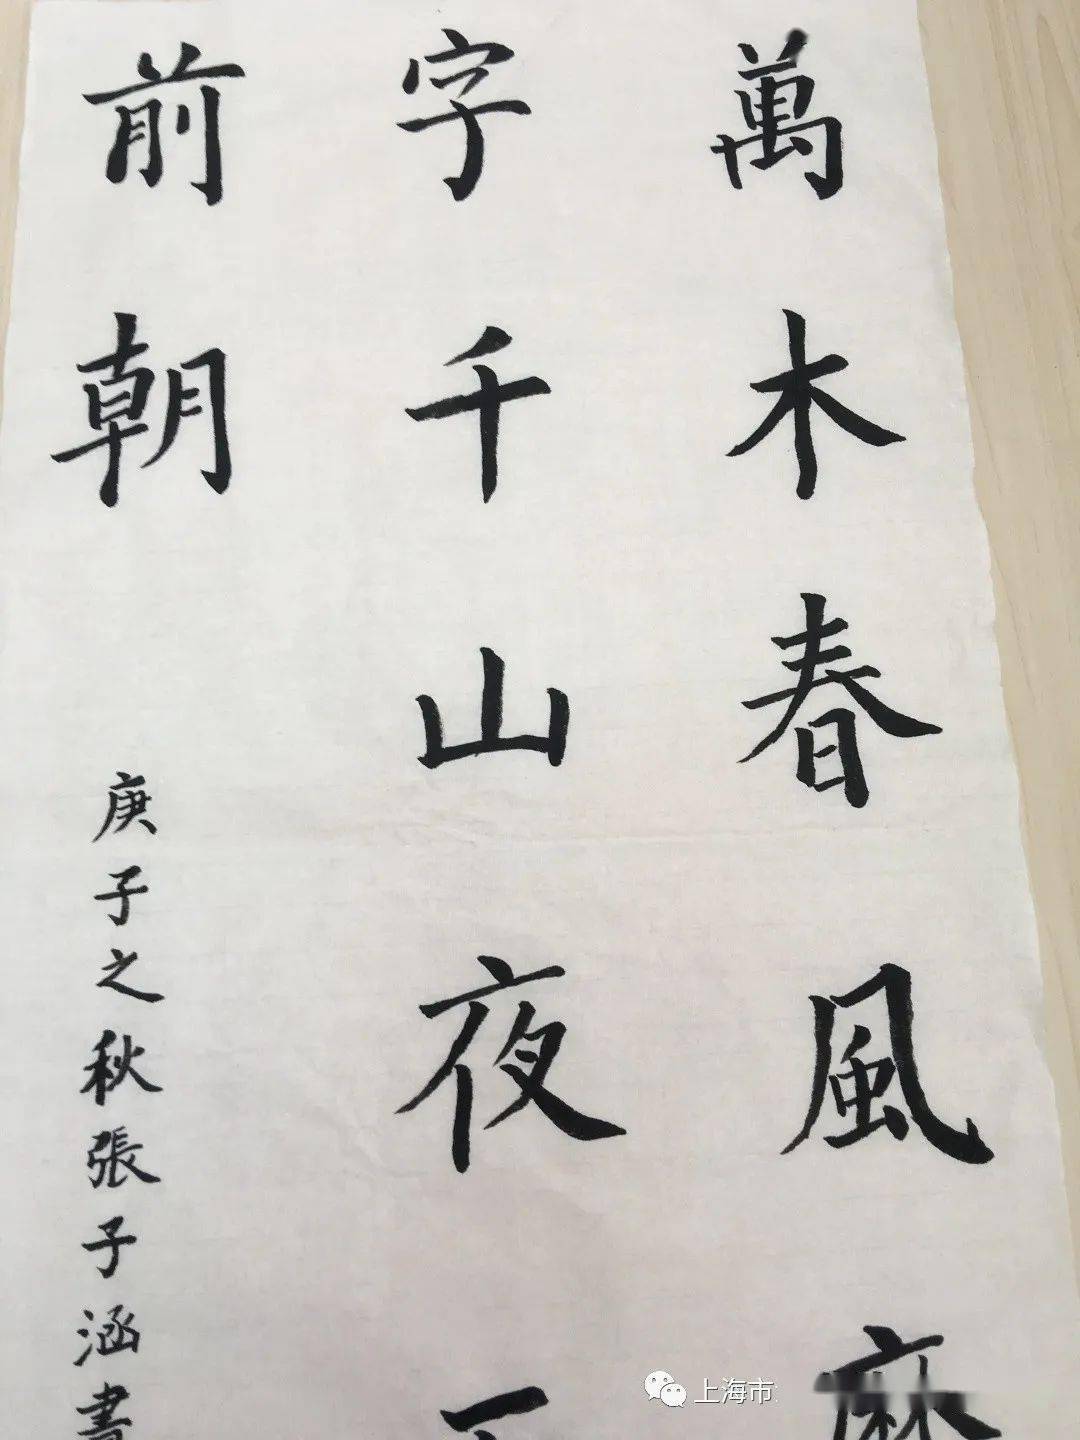 萬木春風
字千山夜
前朝
庚子之秋張子涵書
上海市